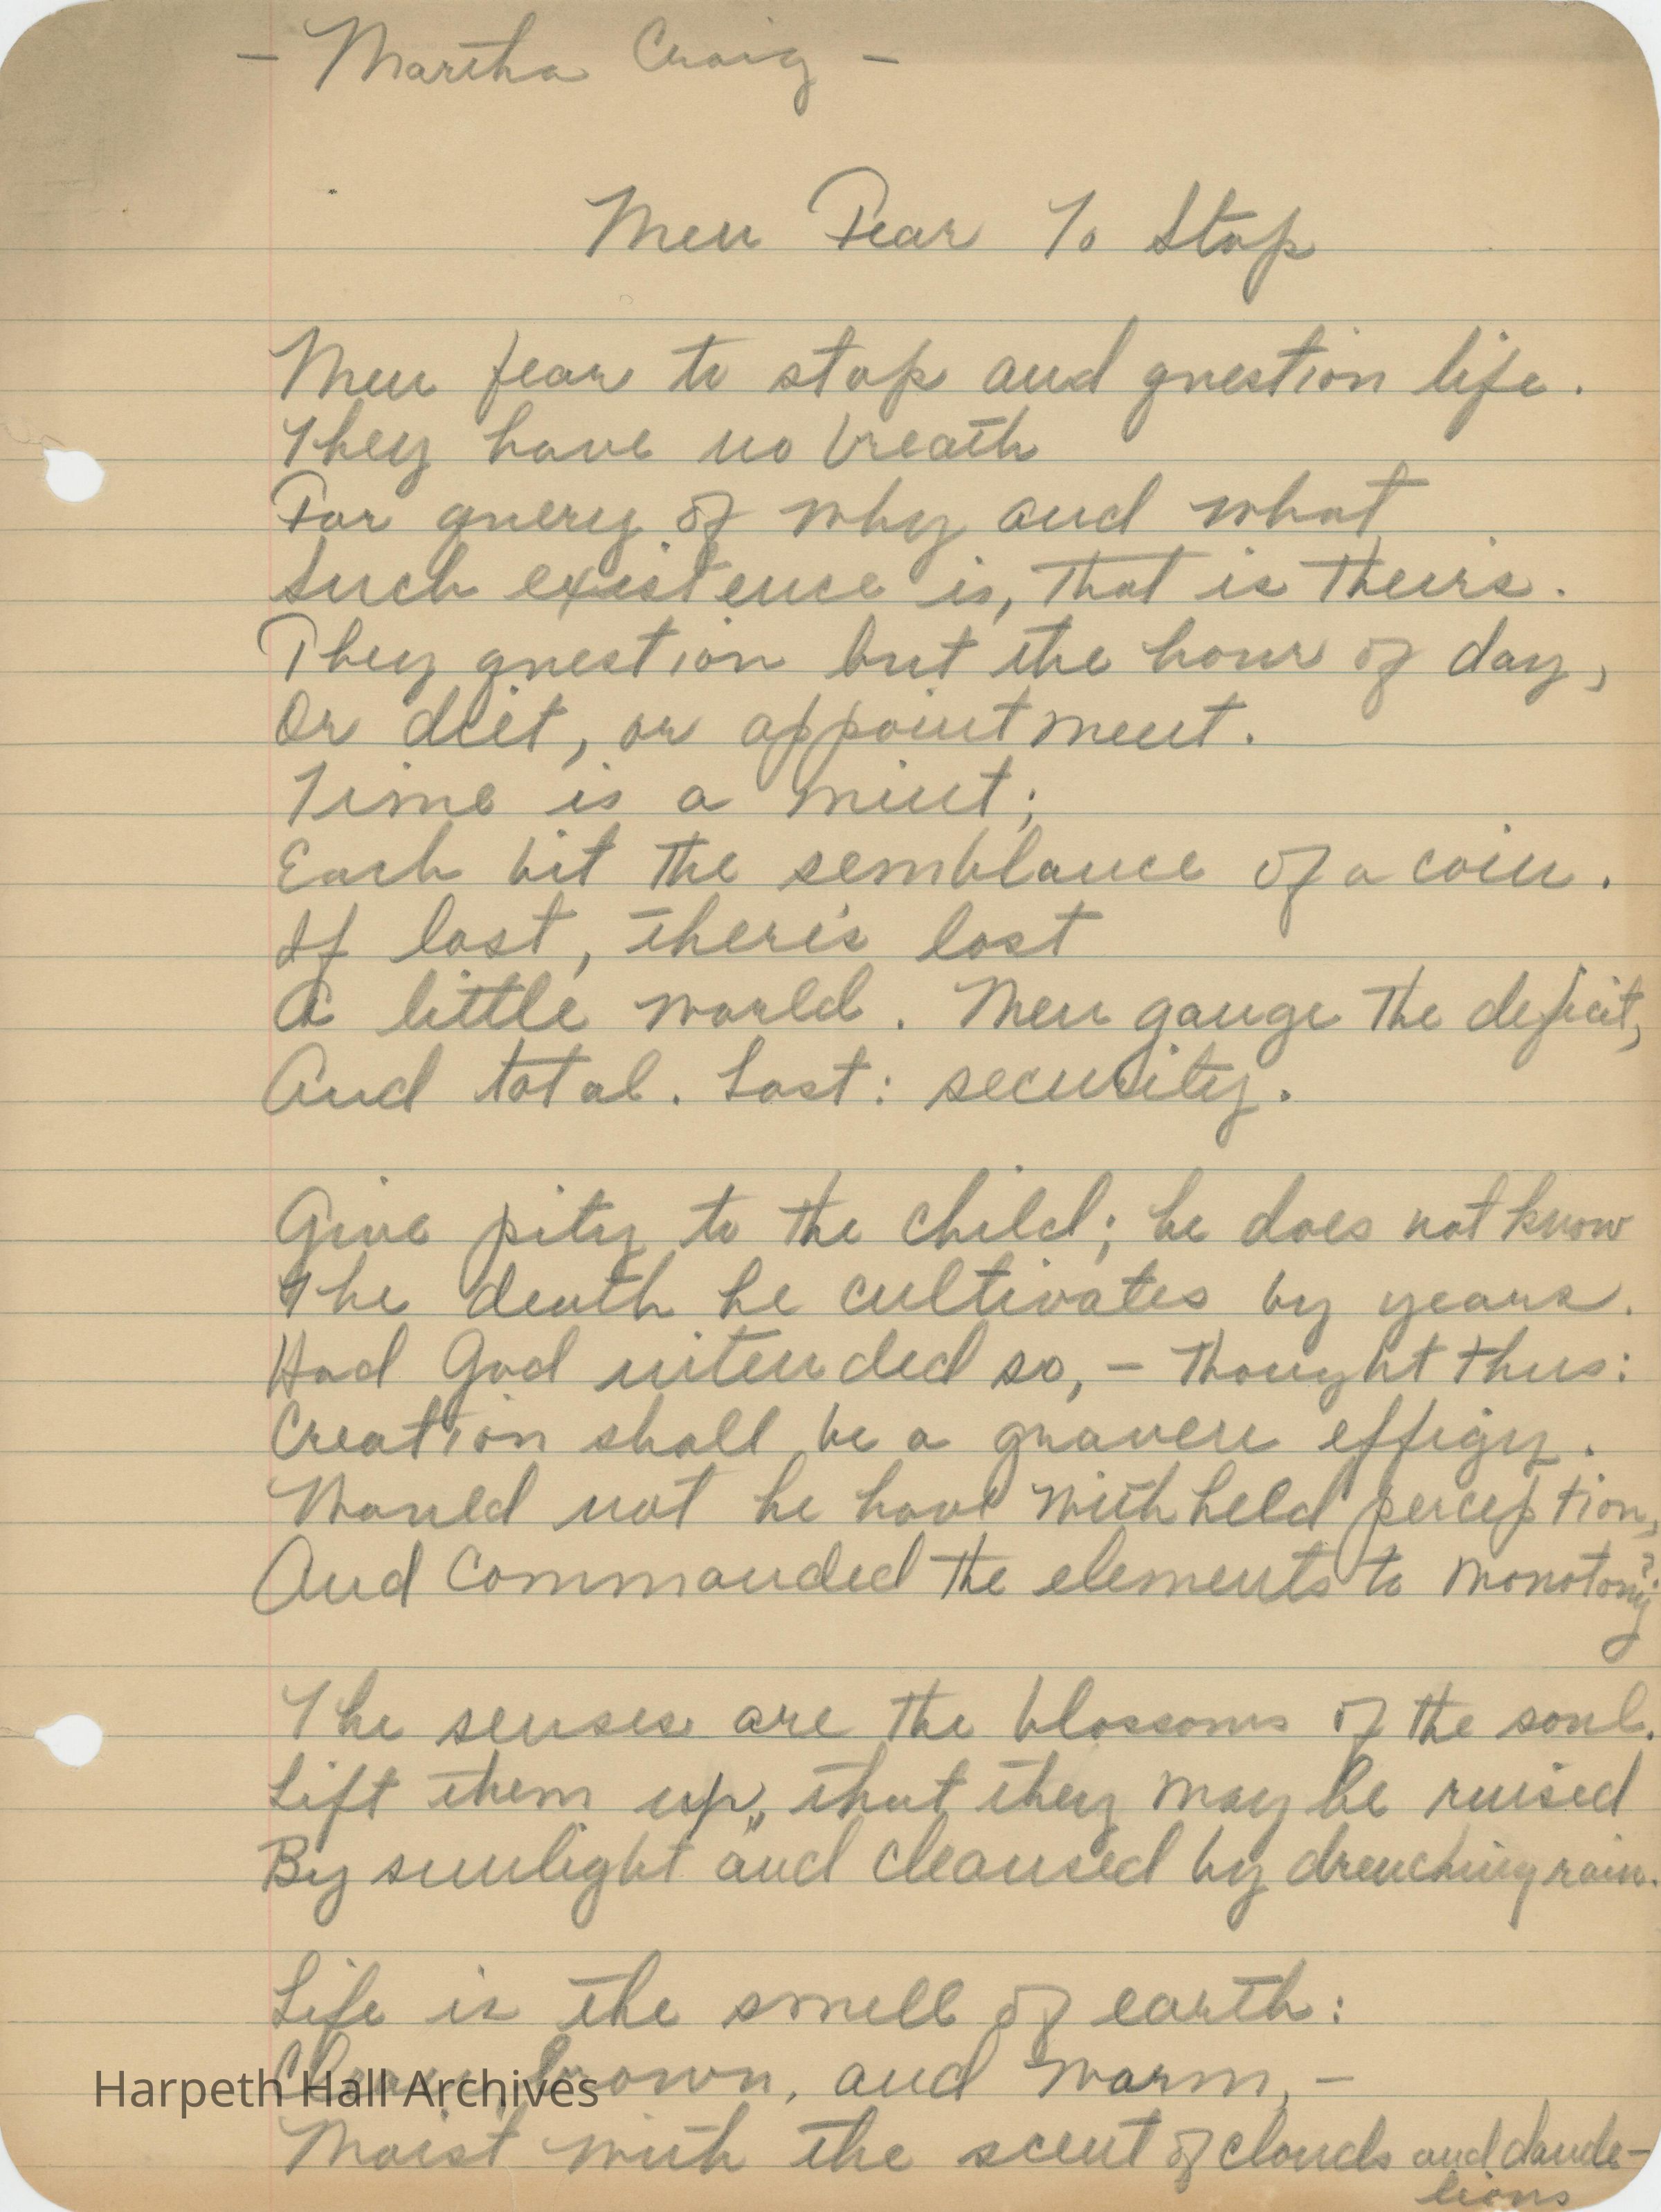 - Martha Craig -
Men Fear To Stop
Men fear to stop and question life.
They have no breath
For query of why and what
Such existence is, that is theirs.
They question but the hour of day,
Or diet, or appointment.
Time is a mint;
Each bit the semblance of a coin.
If lost, there's lost
A little world. Men gauge the deficit,
And total. Lost: security.
Give pity to the child; he does not know
The death he cultivates by years.
Had God intended so, - thought thus:
Creation shall be a graven effigy.
Would not he have withheld perception,
And commanded the elements to monotony?
The senses are the blossoms of the soul.
Lift them up, that they may be raised
By sunlight and cleansed by drenching rain.
Life is the smell of earth:
Clean, brown, and warm, -
Moist with the scent of clouds and dande-
lions
Harpeth Hall Archives